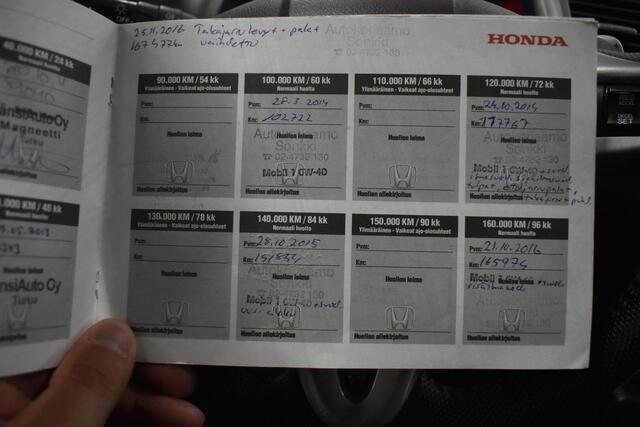 25.11.2016 Takajarrulevyt + palat
167477km vaihdettu
Autokorjaamo
Sonkki
☎ 02-4732 130
HONDA
40.000 KM / 24 kk
Normaali huolto
änsiAuto Oy
Magneetti
Turku
.000 KM / 48 kk
.05.2013
änsiAuto Oy
Turku
90.000 KM / 54 kk
Ylimääräinen - Vaikeat ajo-olosuhteet
Pvm:
Km:
Huollon leima
Huollon allekirjoitus
100.000 KM / 60 kk
Normaali huolto
Pvm: 28.3.2014
Km: 102722
Huollon leima
Autokorjaamo
Sonkki
☎ 02-4732 130
Mobil 1 0W-40
Huollon allekirjoitus
110.000 KM / 66 kk
Ylimääräinen - Vaikeat ajo-olosuhteet
Pvm:
Km:
Huollon leima
Huollon allekirjoitus
120.000 KM / 72 kk
Normaali huolto
Pvm: 24.10.2014
Km: 117767
Huollon leima
Autokorjaamo
Sonkki
☎ 02-4732 130
Mobil 1 0W-40
Huollon allekirjoitus
130.000 KM / 78 kk
Ylimääräinen - Vaikeat ajo-olosuhteet
Pvm:
Km:
Huollon leima
Huollon allekirjoitus
140.000 KM / 84 kk
Normaali huolto
Pvm: 28.10.2015
Km: 151834
Autokorjaamo
Huollon leima
Mobil 1 0W-40 + suod.
uusi akku
Huollon allekirjoitus
150.000 KM / 90 kk
Ylimääräinen - Vaikeat ajo-olosuhteet
Pvm:
Km:
Huollon leima
Huollon allekirjoitus
160.000 KM / 96 kk
Normaali huolto
Pvm: 21.10.2016
Km: 165974
Mobil 1 0W-40 + suod.
Huollon leima
Huollon allekirjoitus
SET